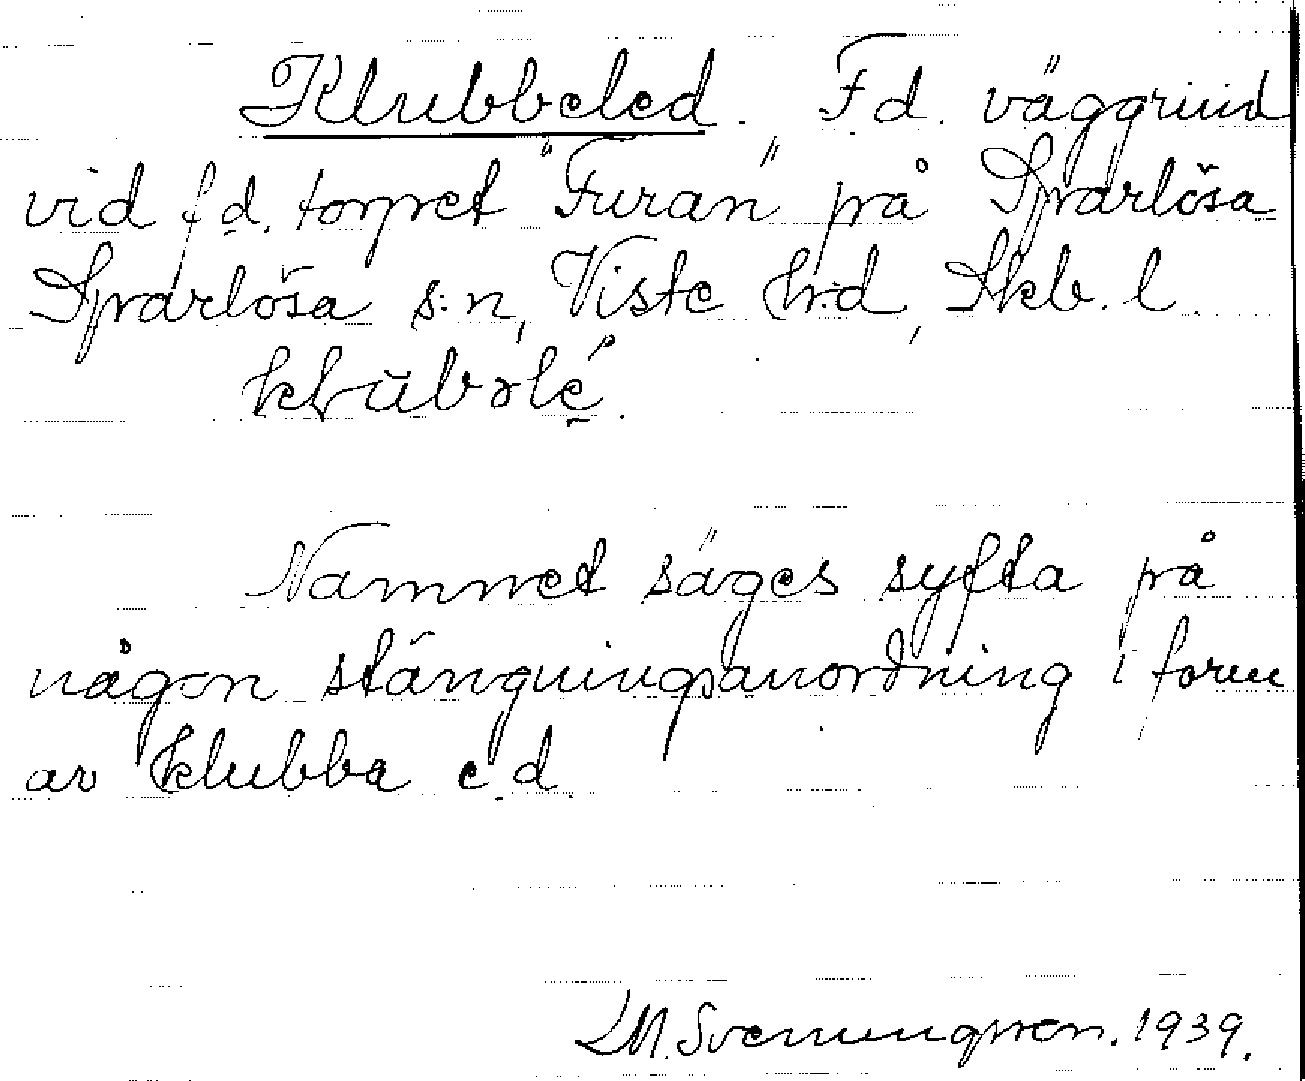 Klubbeled. F.d. väggrind
vid f.d. torpet "Furan" på Sparlösa
Sparlösa s:n, Viste h:d, Skb. l.
klùbəlé.
Namnet säges syfta på
någon stängningsanordning i form
av klubba e.d.
LM. Svenungsson. 1939.